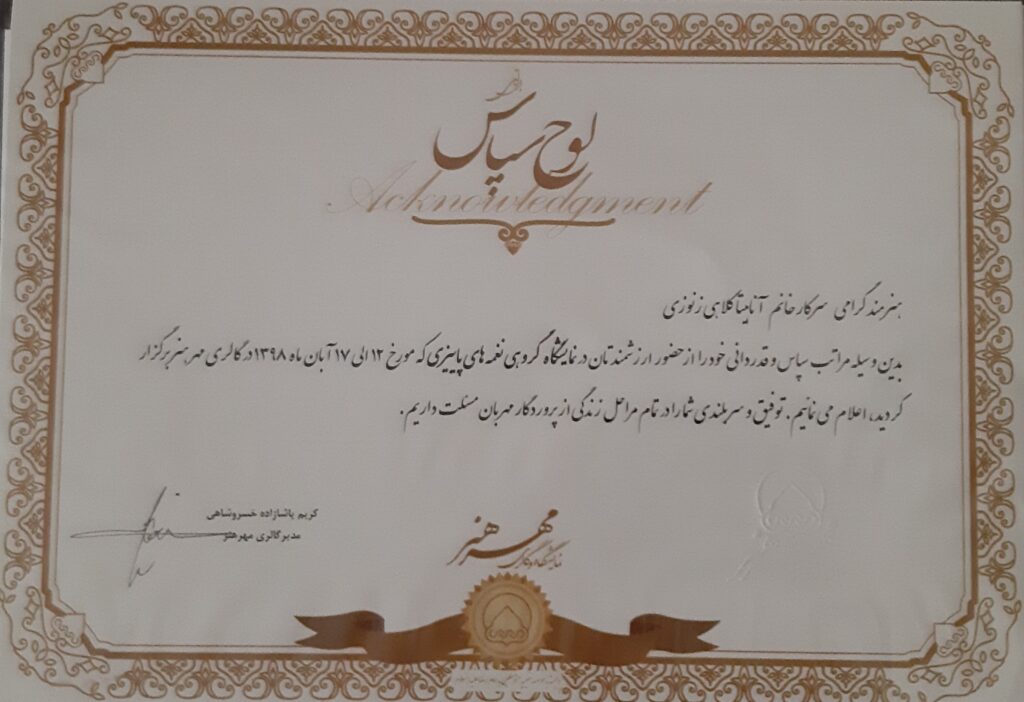 لوح سپاس
Acknowledgment
هنرمند گرامی سرکار خانم آناهیتا کلاهی زنوزی
بدین وسیله مراتب سپاس و قدردانی خود را از حضور ارزشمندتان در نمایشگاه گروهی نغمه های پاییزی که مورخ ۱۲ الی ۱۷ آبان ماه ۱۳۹۸ در گالری مهر هنر برگزار
گردید، اعلام می نمائیم. توفیق و سربلندی شما را در تمام مراحل زندگی از پروردگار مهربان مسئلت داریم.
کریم پاشازاده خسروشاهی
مدیر گالری مهرهنر
مهر هنر